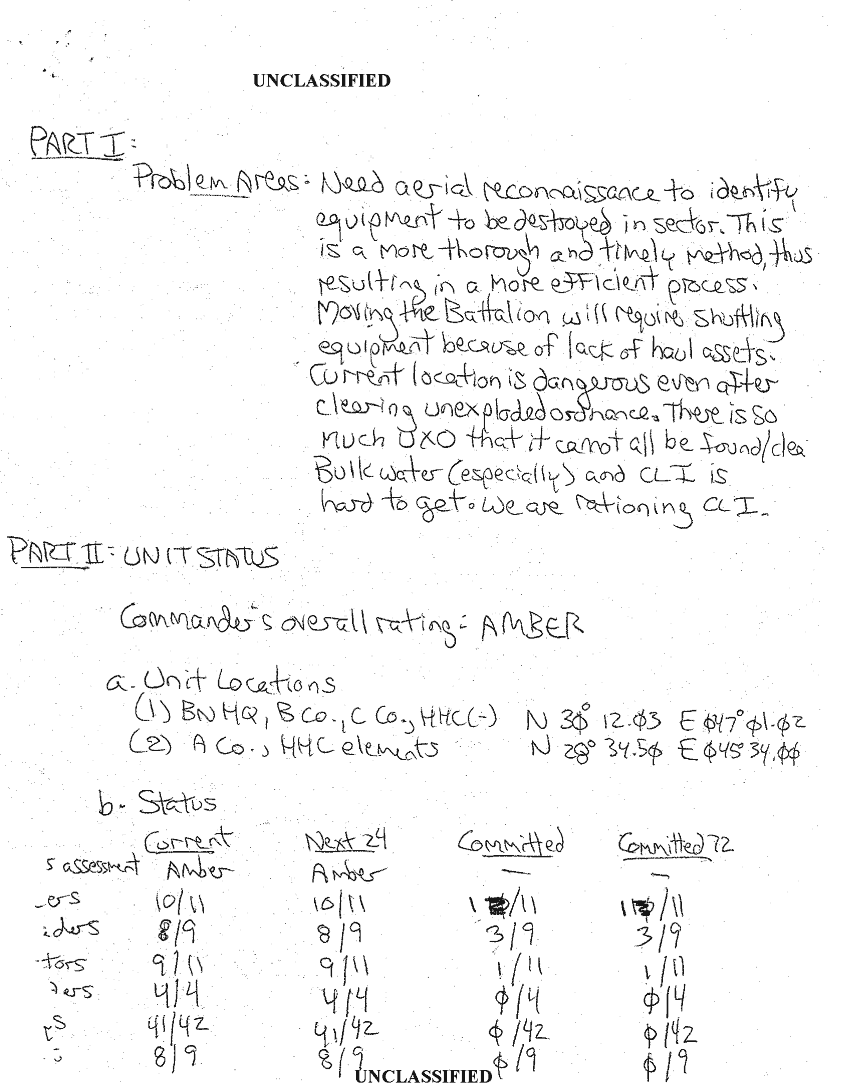 UNCLASSIFIED
PART I:
Problem Areas: Need aerial reconnaissance to identify
equipment to be destroyed in sector. This
is a more thorough and timely method, thus
resulting in a more efficient process.
Moving the Battalion will require shuttling
equipment because of lack of haul assets.
Current location is dangerous even after
clearing unexploded ordnance. There is so
much UXO that it cannot all be found/clea
Bulk water (especially) and CL I is
hard to get. We are rationing CL I.
PART II: UNIT STATUS
Commander's overall rating: AMBER
a. Unit Locations
(1) BN HQ, B Co., C Co., HHC(-) N 3φ° 12.φ3 E φ47° φ1.φ2
(2) A Co., HHC elements N 28° 34.5φ E φ45° 34.φφ
b. Status
Current Next 24 Committed Committed 72
s assessment Amber Amber — —
ers 10/11 10/11 /11 /11
ders 8/9 8/9 3/9 3/9
tors 9/11 9/11 1/11 1/11
ers 4/4 4/4 φ/4 φ/4
s 41/42 41/42 φ/42 φ/42
8/9 8/9 φ/9 φ/9
UNCLASSIFIED